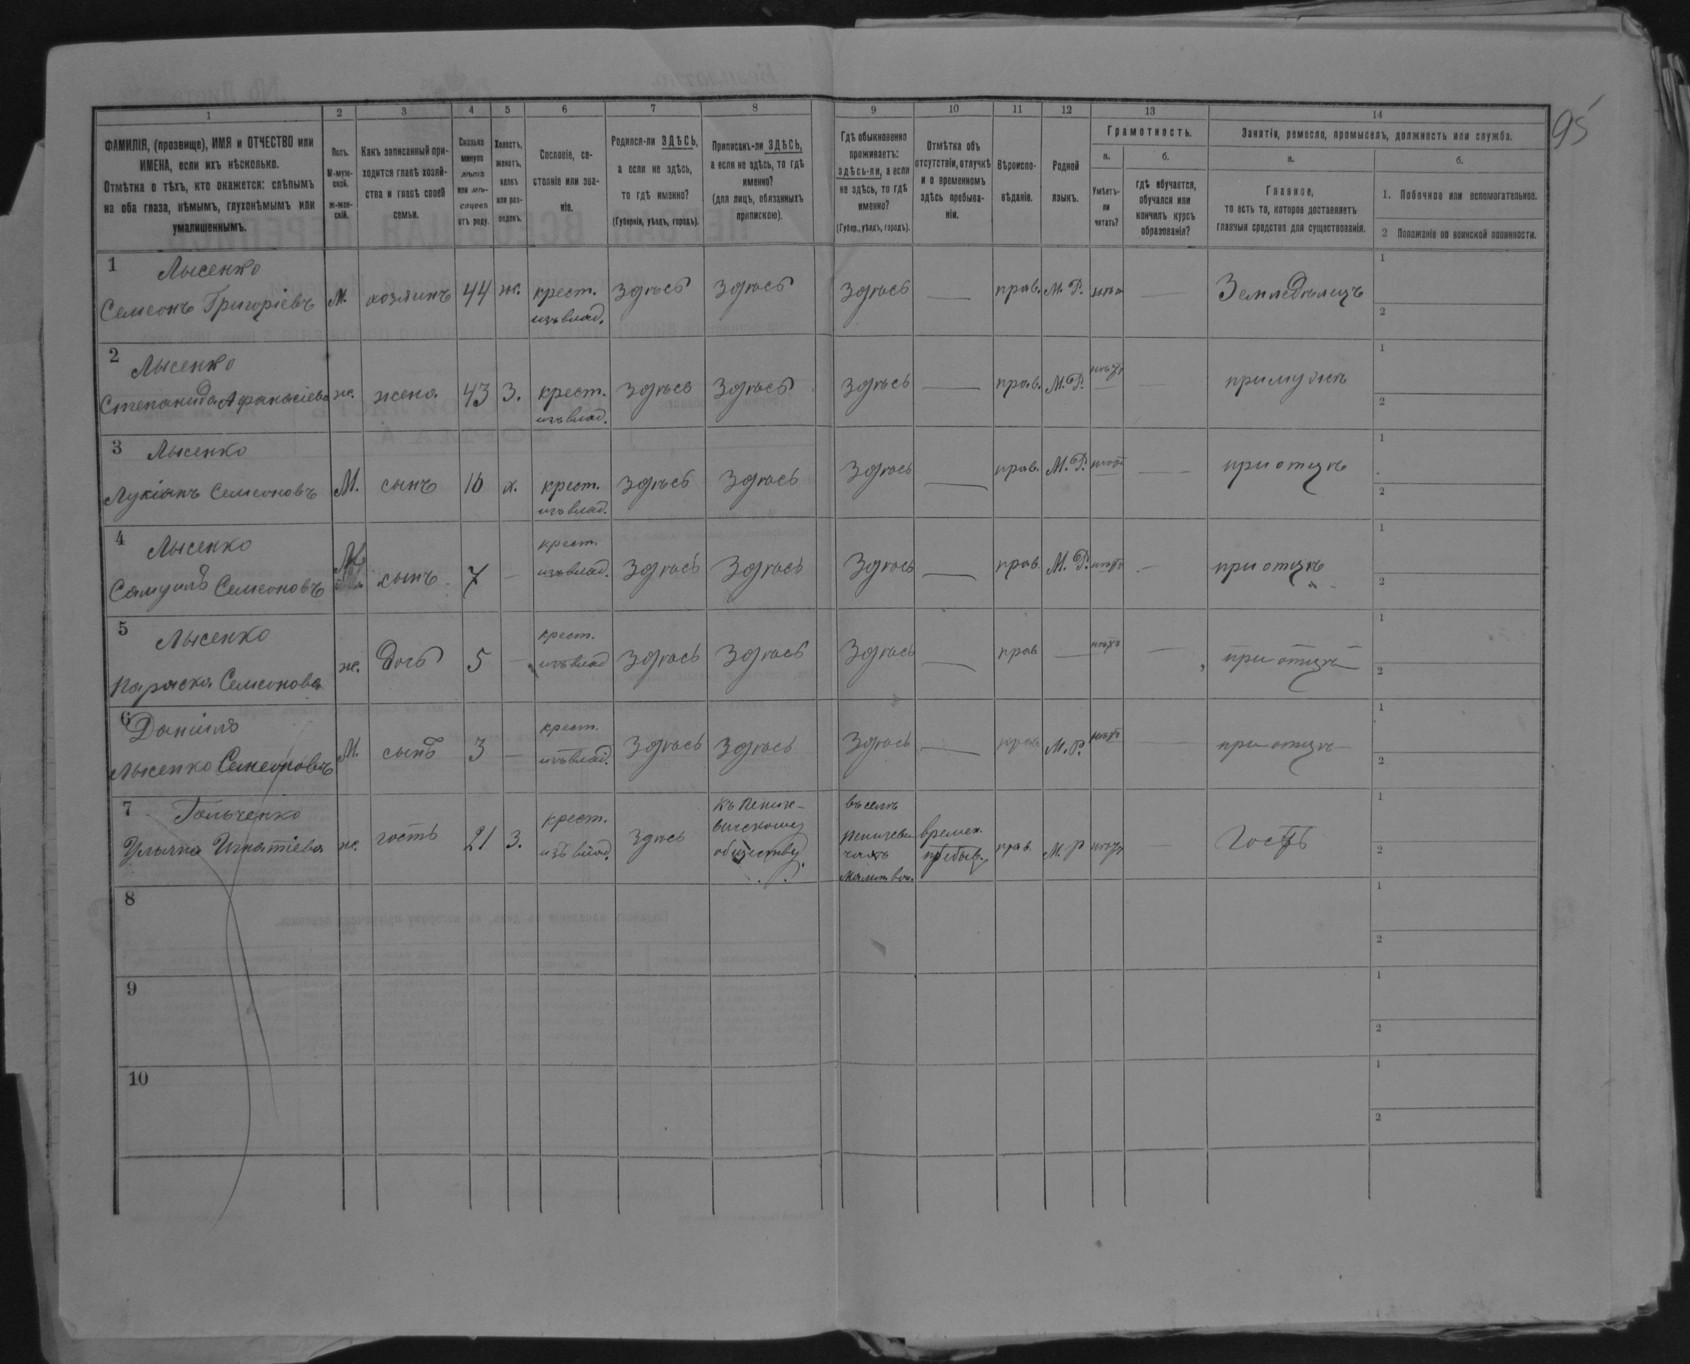 95
1 2 3 4 5 6 7 8 9 10 11 12 13 14
ФАМИЛІЯ, (прозвище), ИМЯ и ОТЧЕСТВО или
ИМЕНА, если ихъ нѣсколько.
Отмѣтка о тѣхъ, кто окажется: слѣпымъ
на оба глаза, нѣмымъ, глухонѣмымъ или
умалишеннымъ.
Полъ.
М-муж-
ской.
ж-жен-
скій.
Какъ записанный при-
ходится главѣ хозяй-
ства и главѣ своей
семьи.
Сколько
минуло
лѣтъ
или мѣ-
сяцевъ
отъ роду.
Холостъ,
женатъ,
вдовъ
или раз-
веденъ.
Сословіе, со-
стояніе или зва-
ніе.
Родился-ли ЗДѢСЬ,
а если не здѣсь,
то гдѣ именно?
(Губернія, уѣздъ, городъ).
Приписанъ-ли ЗДѢСЬ,
а если не здѣсь, то гдѣ
именно?
(для лицъ, обязанныхъ
припискою).
Гдѣ обыкновенно
проживаетъ:
здѣсь-ли, а если
не здѣсь, то гдѣ
именно?
(Губер., уѣздъ, городъ).
Отмѣтка объ
отсутствіи, отлучкѣ
и о временномъ
здѣсь пребыва-
ніи.
Вѣроиспо-
вѣданіе.
Родной
языкъ.
Грамотность.
а.
Умѣетъ-
ли
читать?
б.
гдѣ обучается,
обучался или
кончилъ курсъ
образованія?
Занятіе, ремесло, промыселъ, должность или служба.
а.
Главное,
то есть то, которое доставляетъ
главныя средства для существованія.
б.
1. Побочное или вспомогательное.
2 Положеніе по воинской повинности.
1 Лысенко
Семеонъ Григоріевъ М. хозяинъ 44 ж. крест. здѣсь здѣсь здѣсь — прав. М.Р. — Земледѣлецъ 1
изъ влад. 2
2 Лысенко
Степанида Афанасіева ж. жена 43 З. крест. здѣсь здѣсь здѣсь — прав. М.Р. — при мужѣ 1
изъ влад. 2
3 Лысенко
Лукіанъ Семеоновъ М. сынъ 10 х. крест. здѣсь здѣсь здѣсь — прав. М.Р. — при отцѣ 1
изъ влад. 2
4 Лысенко крест.
Самуилъ Семеоновъ М. сынъ 7 — изъ влад. здѣсь здѣсь здѣсь — прав. М.Р. — при отцѣ 1
2
5 Лысенко крест.
Параска Семеонова ж. дочь 5 — изъ влад здѣсь здѣсь здѣсь — прав — — при отцѣ 1
2
6 Даніилъ крест.
Лысенко Семеоновъ М. сынъ 3 — изъ влад. здѣсь здѣсь здѣсь — прав. М.Р. — при отцѣ 1
2
7 Гольченко
Ульяна Игнатіева ж. гость 21 З. крест. изъ влад. здѣсь
обществу.
времен.
пребыв. прав. М.Р — Гость 1
2
8 1
2
9 1
2
10 1
2